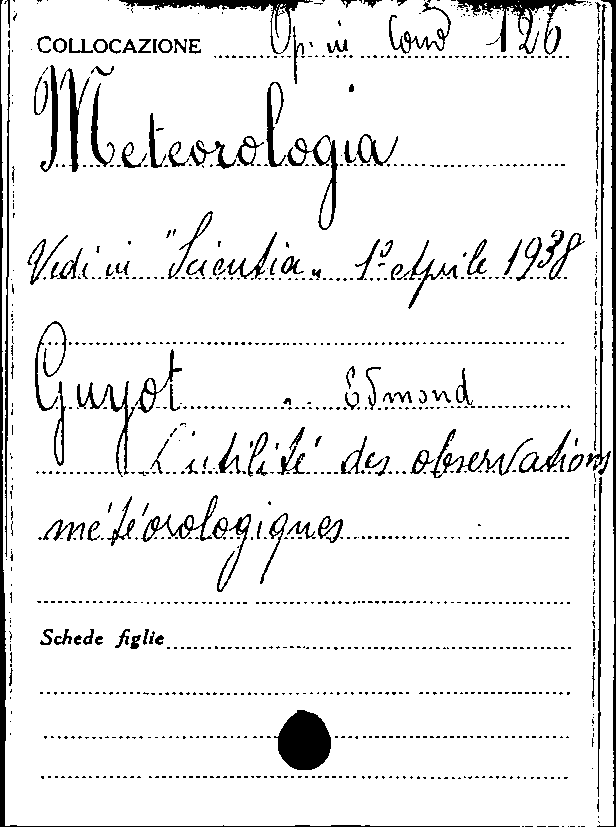 COLLOCAZIONE Op. in Cons 126
Meteorologia
Vedi in "Scientia„ 1º Aprile 1938
Guyot Edmond
L'utilité des observations
météorologiques
Schede figlie